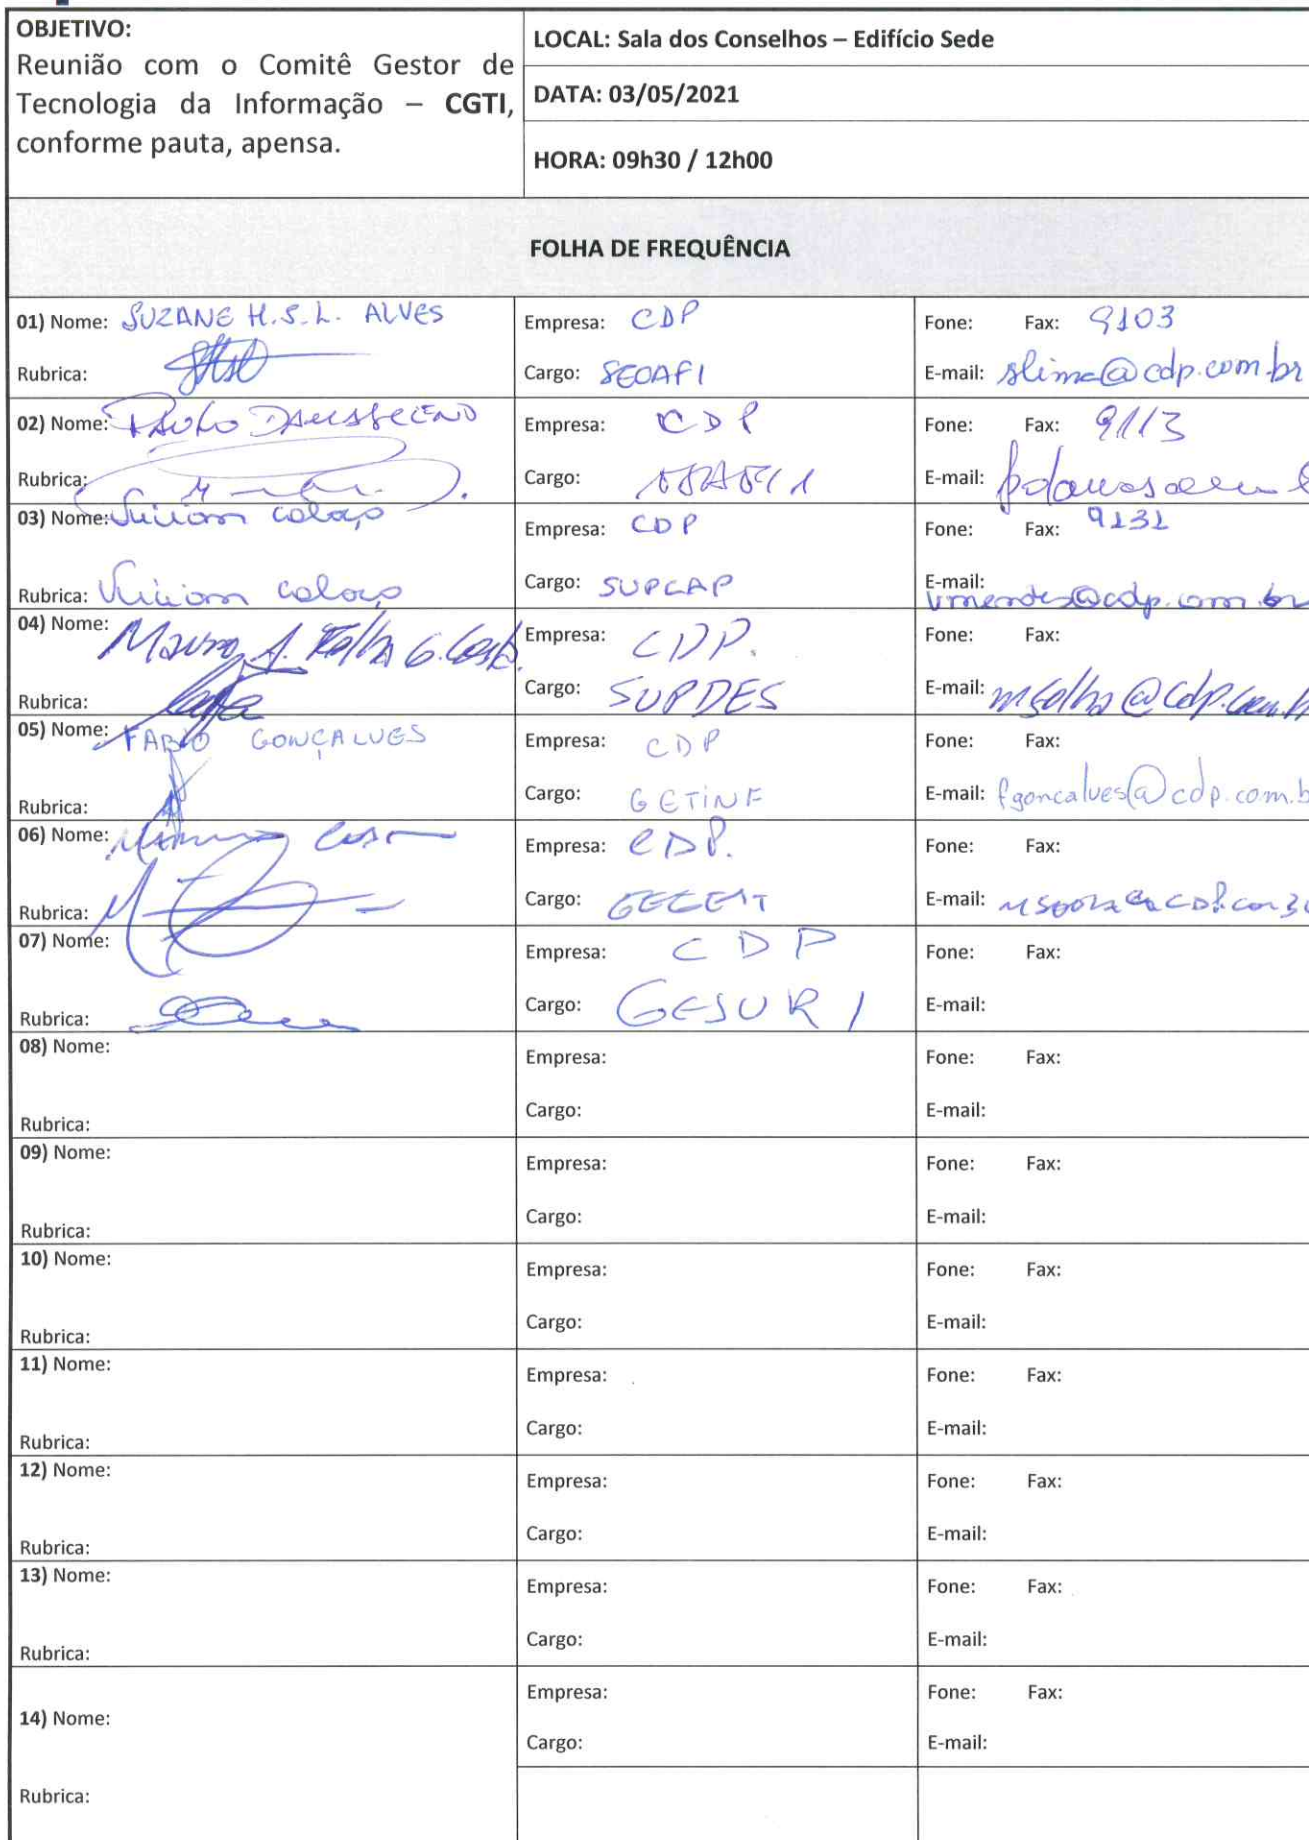 OBJETIVO:
Reunião com o Comitê Gestor de
Tecnologia da Informação – CGTI,
conforme pauta, apensa.
LOCAL: Sala dos Conselhos – Edifício Sede
DATA: 03/05/2021
HORA: 09h30 / 12h00
FOLHA DE FREQUÊNCIA
01) Nome: SUZANE H.S.L. ALVES
Rubrica:
Empresa: CDP
Cargo: SEOAFI
Fone: Fax: 9103
E-mail: slima@cdp.com.br
02) Nome: PAULO
Rubrica:
Empresa: CDP
Cargo:
Fone: Fax: 9113
E-mail:
03) Nome: Viviam colaço
Rubrica: Viviam colaço
Empresa: CDP
Cargo: SUPCAP
Fone: Fax: 9131
E-mail: vmendes@cdp.com.br
04) Nome: Mauro A. Folha G. Costa
Rubrica:
Empresa: CDP.
Cargo: SUPDES
Fone: Fax:
E-mail: mfolha@cdp.com.b
05) Nome: FABIO GONÇALVES
Rubrica:
Empresa: CDP
Cargo: GETINF
Fone: Fax:
E-mail: fgoncalves@cdp.com.b
06) Nome:
Rubrica:
Empresa: CDP.
Cargo:
Fone: Fax:
E-mail:
07) Nome:
Rubrica:
Empresa: CDP
Cargo: GESURI
Fone: Fax:
E-mail:
08) Nome:
Rubrica:
Empresa:
Cargo:
Fone: Fax:
E-mail:
09) Nome:
Rubrica:
Empresa:
Cargo:
Fone: Fax:
E-mail:
10) Nome:
Rubrica:
Empresa:
Cargo:
Fone: Fax:
E-mail:
11) Nome:
Rubrica:
Empresa:
Cargo:
Fone: Fax:
E-mail:
12) Nome:
Rubrica:
Empresa:
Cargo:
Fone: Fax:
E-mail:
13) Nome:
Rubrica:
Empresa:
Cargo:
Fone: Fax:
E-mail:
14) Nome:
Rubrica:
Empresa:
Cargo:
Fone: Fax:
E-mail: